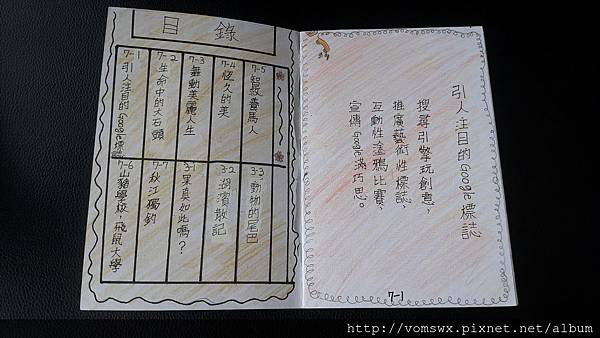 目錄
7-1 引人注目的Google標誌
7-2 生命中的大石頭
7-3 舞動美麗人生
7-4 恆久的美
7-5 智救養馬人
7-6 山豬學校,飛鼠大學
7-7 秋江獨釣
3-1 果真如此嗎?
3-2 湖濱散記
3-3 動物的尾巴
引人注目的Google標誌
搜尋引擎玩創意,
推廣藝術性標誌、
互動性塗鴉比賽,
宣傳Google滿巧思。
7-1
http://vomswx.pixnet.net/album